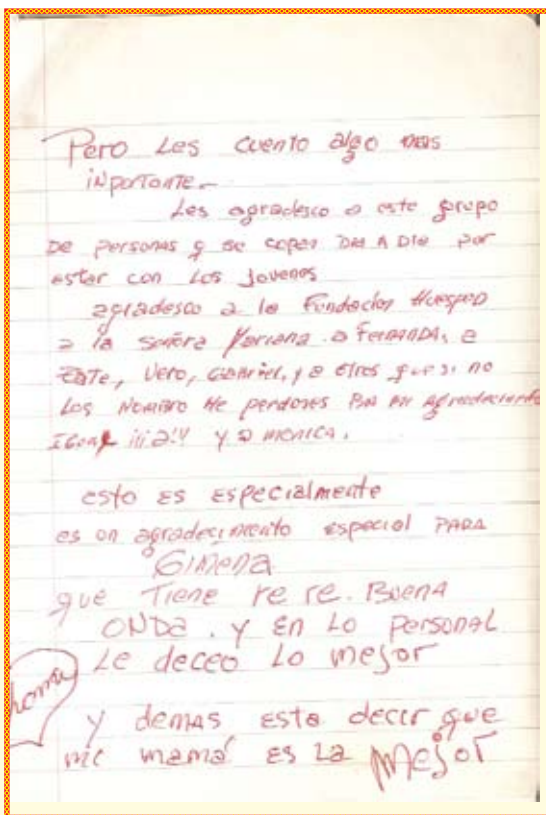 Pero Les cuento algo mas
iNporTaNTe.-
Les agradesco a este grupo
De personas q se copan DIA A DIA por
estar con Los Jovenes
agradesco a la Fundacion Huesped
a la señora Mariana. a FernANDA, a
Vero, GABRiel, y a otros que si no
Los NomBro Me perdones
IGuaL y a monica.
esto es especialmente
es un agradecimiento especial PARA
Gimena
que Tiene re re. Buena
ONDa. y en Lo personal
Le deceo Lo mejor
y demas esta decir que
mi mamá es La mejor